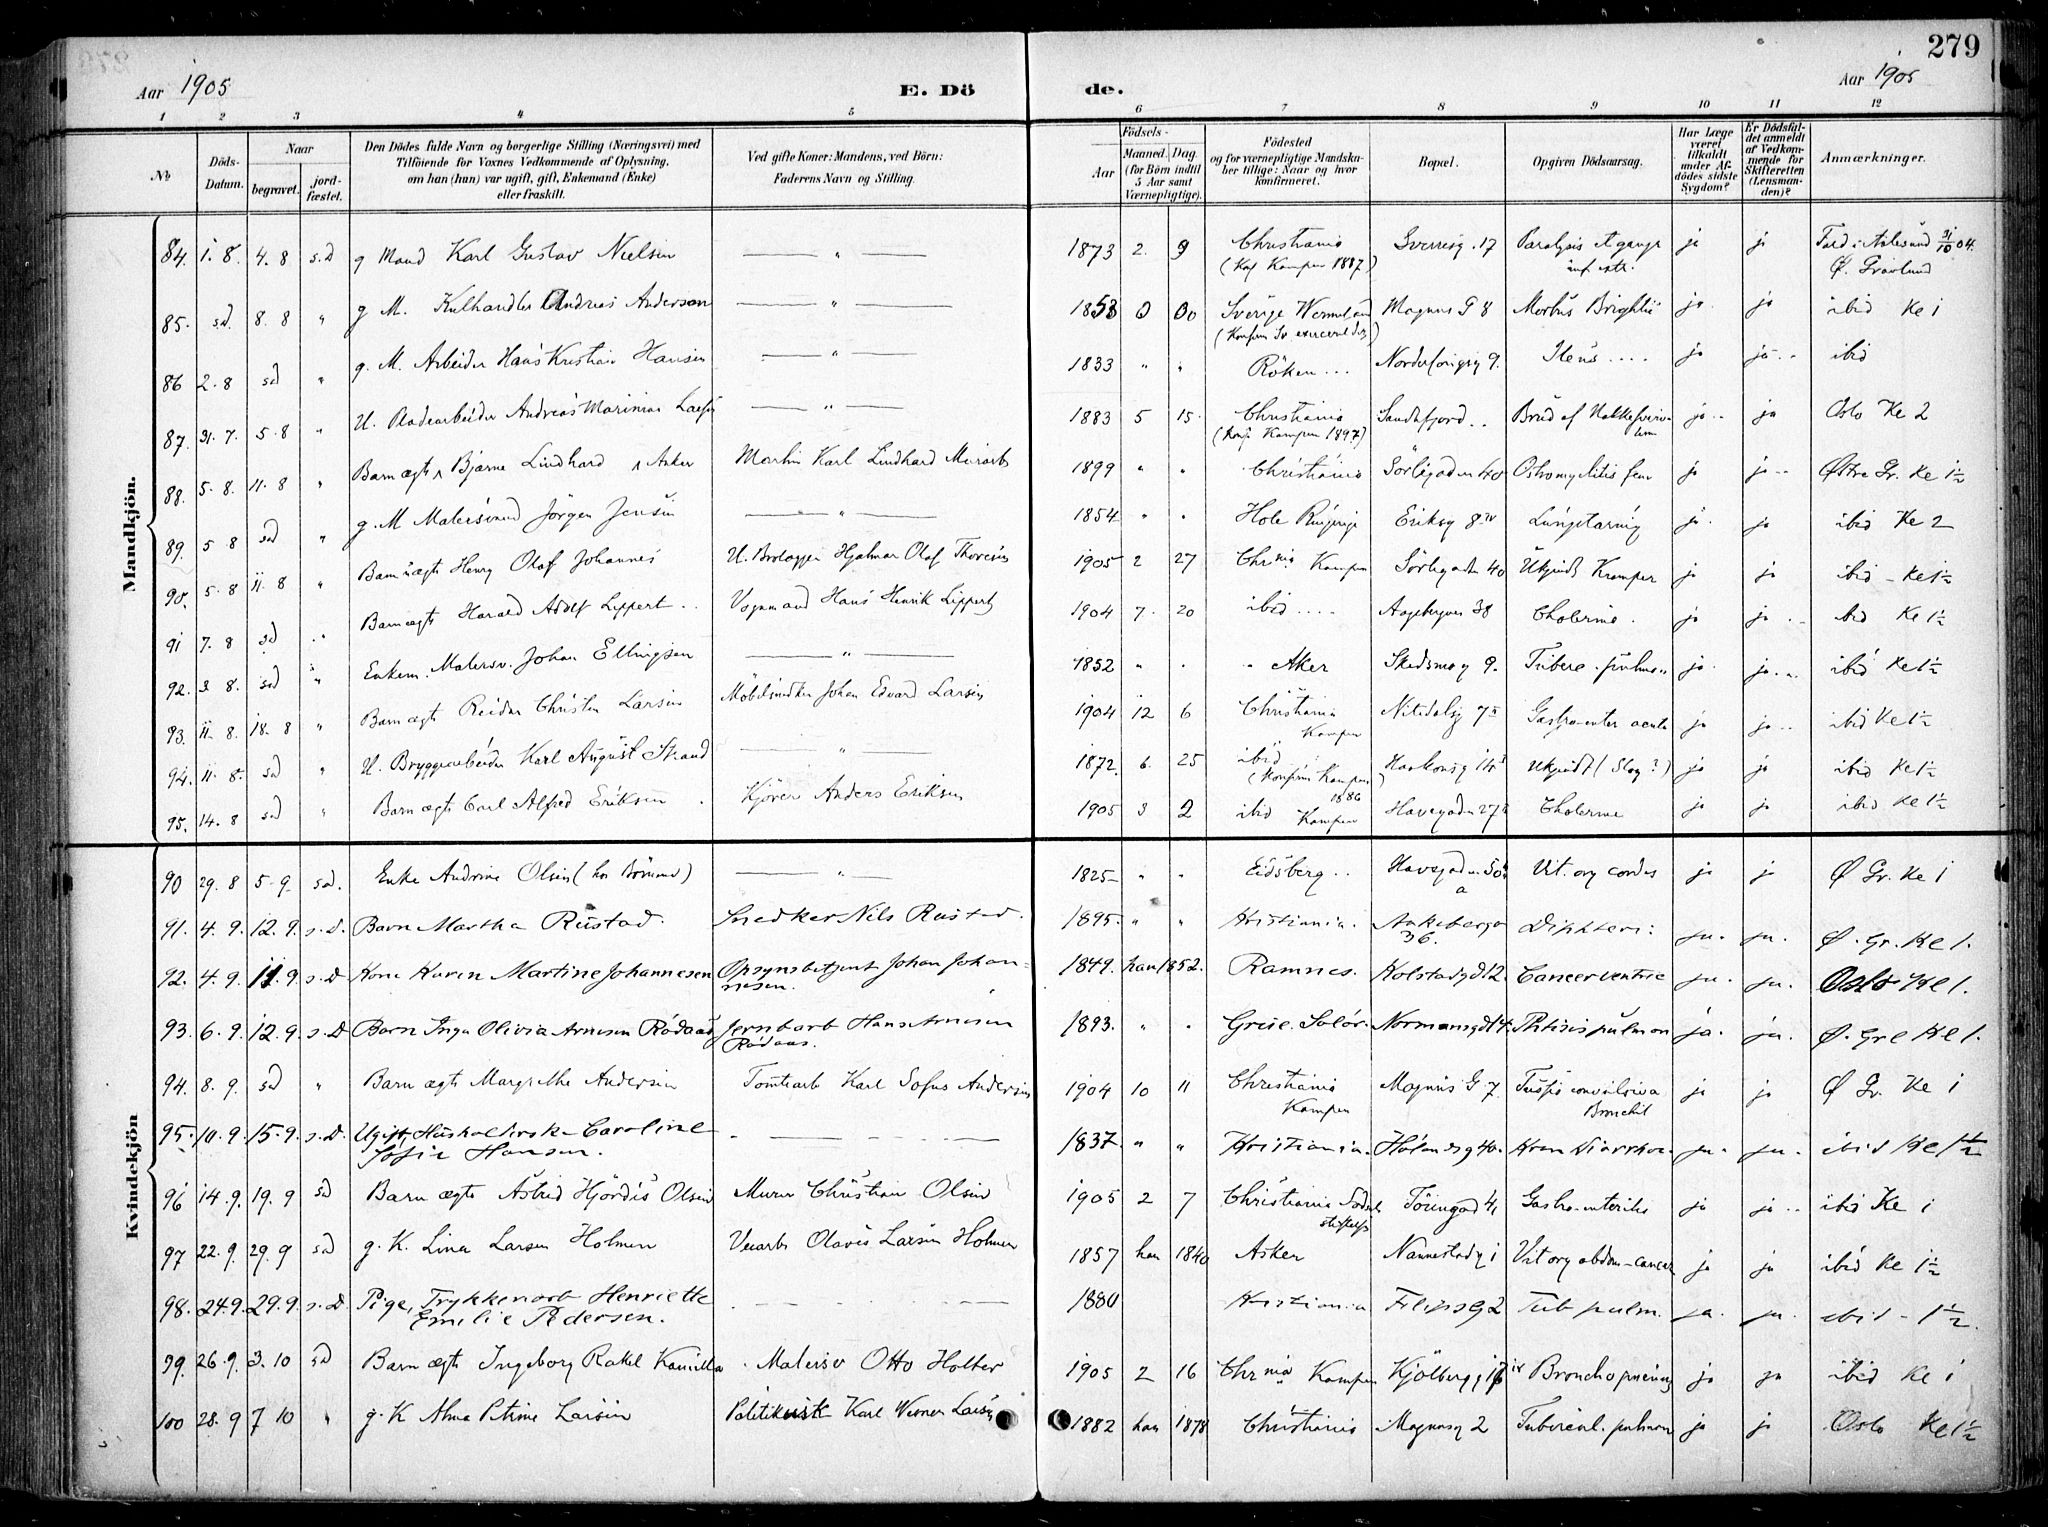 279
Aar 1905
E. Dö de.
Aar 1905
1 2 3 4 5 6 7 8 9 10 11 12
No
Döds-Datum.
Naar begravet. jordfæstet.
Den Dödes fulde Navn og borgerlige Stilling (Næringsvei) med Tilföiende for Voxnes Vedkommende af Oplysning, om han (hun) var ugift, gift, Enkemand (Enke) eller fraskilt.
Ved gifte Koner: Mandens, ved Börn: Faderens Navn og Stilling.
Födsels-
Aar Maaned. Dag. (for Börn indtil 5 Aar samt Værnepligtige).
Födested og for værnepligtige Mandskaber tillige: Naar og hvor konfirmeret.
Bopæl.
Opgiven Dödsaarsag.
Har Læge været tilkaldt under Afdödes sidste Sygdom?
Er Dödsfaldet anmeldt af Vedkommende for Skifteretten (Lensmanden)?
Anmærkninger.
Mandkjön.
84. 1. 8. 4. 8 s.d g Mand Karl Gustav Nielsen — " — 1873 2. 9 Christiania (Kof Kampen 1887) Sverresg. 17 Paralysis ja ja
Ø. Gravlund
85. sd. 8. 8 " g M. Kulhandler Andreas Anderson — " — Sverige Magnus G 8 Morbus Brightii ja ja ibid Ke 1
86 2. 8 sd " g. M. Arbeider Hans Kristian Hansen — " — 1833 " " Röken ... 9. Ileus .... ja ja ibid
87. 31. 7. 5. 8 " U. Pladearbeider Andreas Marinius Larsen — " — 1883 5 15. Christiania (Konf Kampen 1897) Sandefjord .. Brud af ja ja Oslo Ke 2
88. 5. 8. 11. 8 " Barn ægte Bjarne Lindhard Martin Karl Lindhard Murarb 1899 " " Christiania Sörligaden 40 Osteomyelitis fem ja ja Østre Gr. Ke 1½
89. 5 8 sd " g. M Malersvend Jörgen Jensen — " — 1854 " " Hole Ringerige Eriksg 8 IV Lungetæring ja ja ibid Ke 2
90. 5. 8 11. 8 " Barn uægte Henry Olaf Johannes U. Brolægger Hjalmar Olaf Thoresen 1905 2 27 Chrnia Kampen Sörligaden 40 Ukjendt Kramper ja ja ibid - Ke 1½
91 7. 8 sd " Barn ægte Harald Adolf Lippert Vognmand Hans Henrik Lippert 1904 7. 20 ibid .... 38 Cholerine. ja ja ibid Ke 1½
92. 3 8. sd " Enkem. Malersv. Johan Ellingsen — " — 1852 " " Aker Skedsmog 9. Tuberc. pulm. ja ja ibid Ke 1½
93. 11. 8. 18. 8 " Barn ægte Reidar Christen Larsen Möbelsnedker Johan Edvard Larsen 1904 12 6 Christiania Kampen Nitedalsg 7 II Gastro-enter acuta ja ja ibid Ke 1½
94. 11. 8. sd " U. Bryggearbeider Karl August Strand — " — 1872. 6. 25 ibid (Konfirm Kampen 1886) Haakonsg 14 Ukjendt (Slag?) ja ja ibid Ke 1½
95. 14. 8 sd " Barn ægte Carl Alfred Eriksen Kjörer Anders Eriksen 1905 3 2 ibid Kampen Havegaden 27 Cholerine ja ja ibid Ke 1½
Kvindekjön
90 29. 8 5-9 sd. Enke Andrine Olsen — " — 1825 " " Eidsberg .. Vit. org cordis ja ja Ø Gr. Ke 1
91. 4. 9. 12. 9. s.D. Barn Martha Rustad. Snedker Nils Rustad. 1895. " " Kristiania. 36. Diphteri: ja. ja. Ø. Gr. Ke 1.
92. 4. 9. 11. 9. s.D. Kone Karen Martine Johannesen Opsynsbetjent Johan Johannesen. 1849. han 1852. Ramnes. Kolstadgd 12. Cancer ventric ja. ja. Oslo Ke 1.
93. 6. 9. 12. 9. s.D. Barn Inga Olivia Arnesen Rödaas Jernbarb Hans Arnesen Rödaas. 1893. " " Grue. Solör. Normansgd 14. Phtisis pulmon ja. ja. Ø. Gr e Ke 1.
94. 8. 9. sd " Barn ægte Margrethe Andersen Tomtearb Karl Sofus Andersen 1904 10 11 Christiania Kampen Magnus G. 7 Tussis convulsiva Bronchit ja ja Ø Gr. Ke 1
95. 10. 9. 15. 9. s.D. Ugift, Husholderske Caroline Sofie Hansen. 1837. " " Kristiania. Hölandsg 40. Kron Diarrhoe. ja. ja. ibid Ke 1½
96 14. 9. 19. 9 sd Barn ægte Astrid Hjördis Olsen Murer Christian Olsen 1905 2 7 Christiania Gastro-enteritis ja ja ibid Ke 1
97 22. 9. 29. 9 sd g. K. Lina Larsen Holmen Veiarb Olavus Larsen Holmen 1857 han 1840 Asker Nannestadg 1 Vit org abdom-cancer ja ja ibid Ke 1½
98. 24. 9. 29. 9. s.D. Pige, Trykkeriarb Henriette Emilie Pedersen. 1880 Kristiania Filipsg 2 Tub pulm. ja. ja. ibid - 1½.
99. 26. 9. 3. 10 sd Barn ægte Ingeborg Rakel Kamilla Malersv Otto Holter 1905 2 16 Chrnia Kampen Kjölbergg Bronchopneumoni ja ja ibid Ke 1
100 28. 9 7 10 " g. K Alma Petrine Larsen Politikonst Karl Werner Larsen 1882 han 1878 Christiania Magnusg 2 Tubercul. pulmon ja ja Oslo Ke 1½